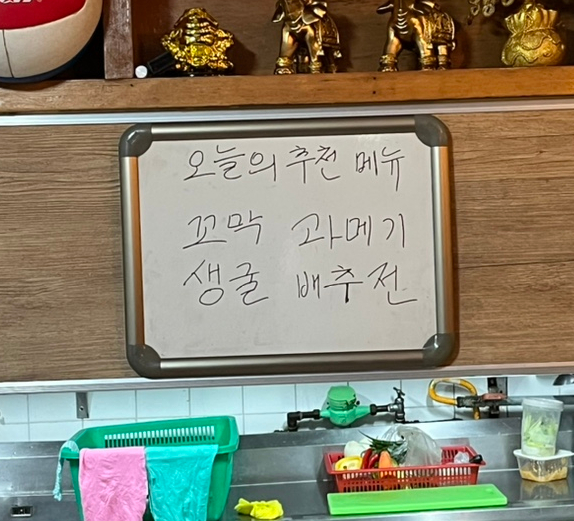 오늘의 추천 메뉴
꼬막 과메기
생굴 배추전